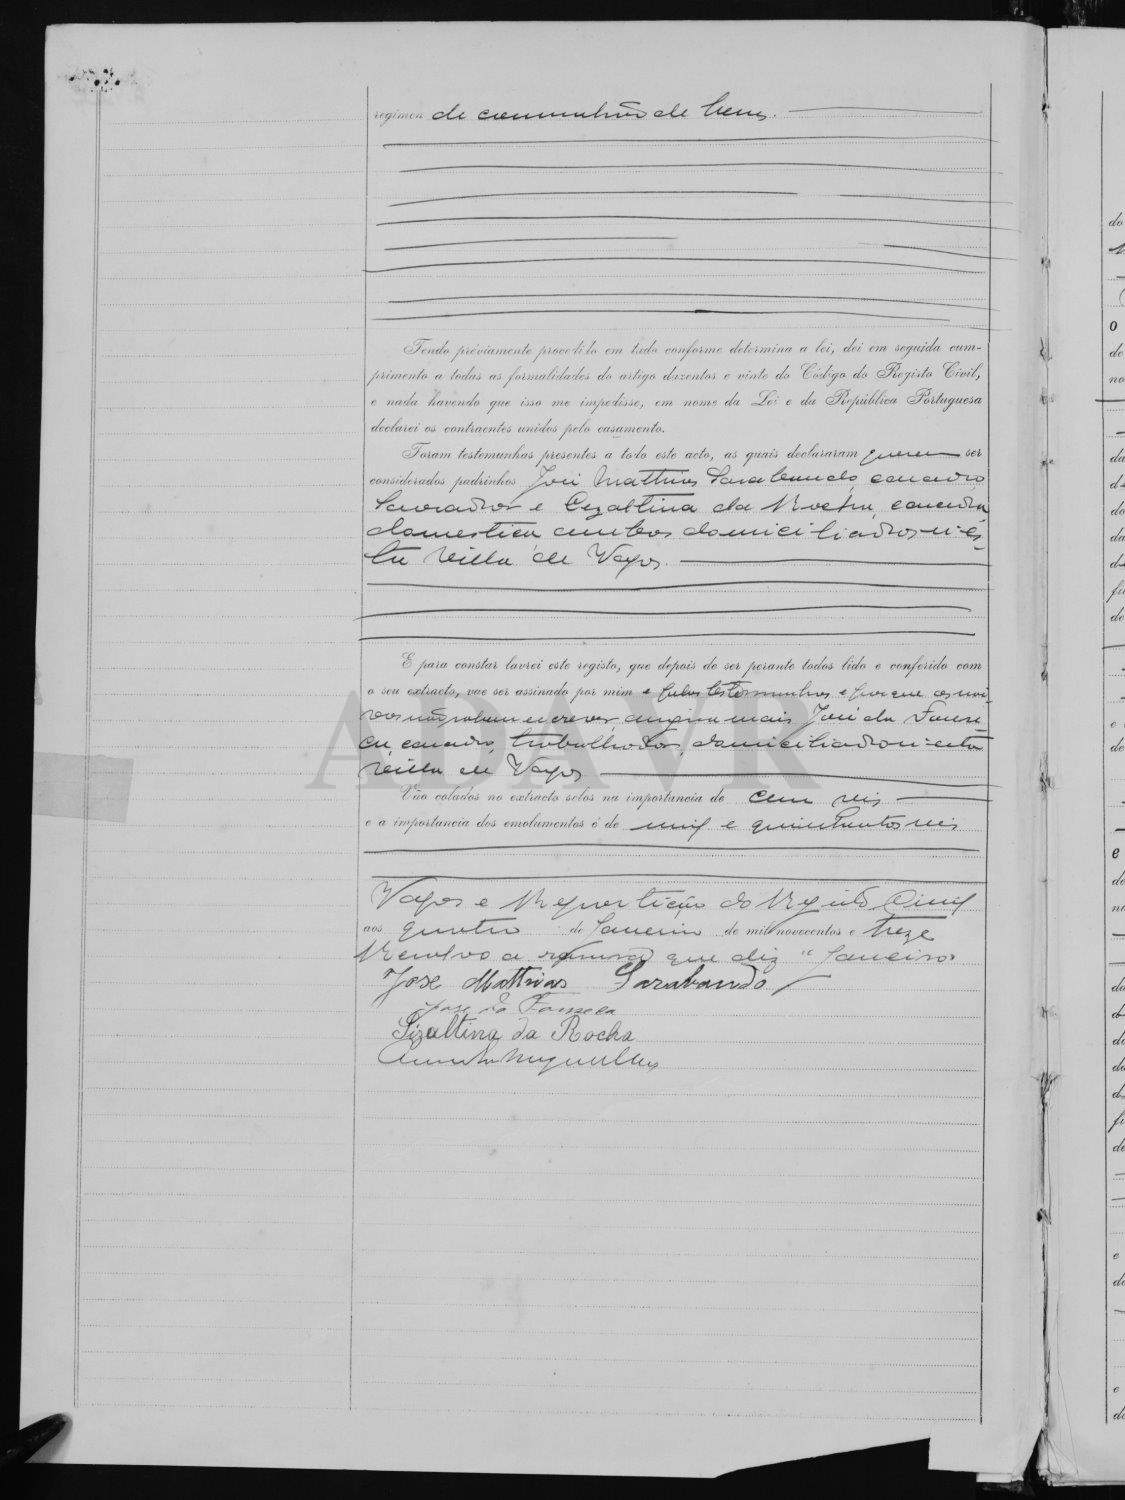 regimen de communhão de bens.
Tendo préviamente procedido em tudo conforme determina a lei, dei em seguida cum-
primento a todas as formalidades do artigo duzentos e vinte do Código do Registo Civil,
e nada havendo que isso me impedisse, em nome da Lei e da República Portuguesa
declarei os contraentes unidos pelo casamento.
Foram testemunhas presentes a todo este acto, as quais declararam querem ser
considerados padrinhos José Matthias Sarabando, casado
lavrador e Cezaltina da Rocha, casada
domestica ambos domiciliados n'es-
ta villa de Vagos.
E para constar lavrei este registo, que depois de ser perante todos lido e conferido com
o seu extracto, vae ser assinado por mim e pelas testemunhas e porque os noi-
vos não sabem escrever, assigna mais José da Fonse-
ca, casado, trabalhador, domiciliado n'esta
villa de Vagos
Vão colados no extracto selos na importancia de cem reis
e a importancia dos emolumentos é de mil e quinhentos reis
Vagos e Repartição do Registo Civil
aos quatro de Janeiro de mil novecentos e treze
Resalvo a rasura que diz "Janeiro"
José Matthias Sarabando
José da Fonseca
Sizaltina da Rocha
ADAVR
do
o
de
no
da
do
da
fi
de
e
de
e
do
no
do
do
da
fi
de
e
do
e
do